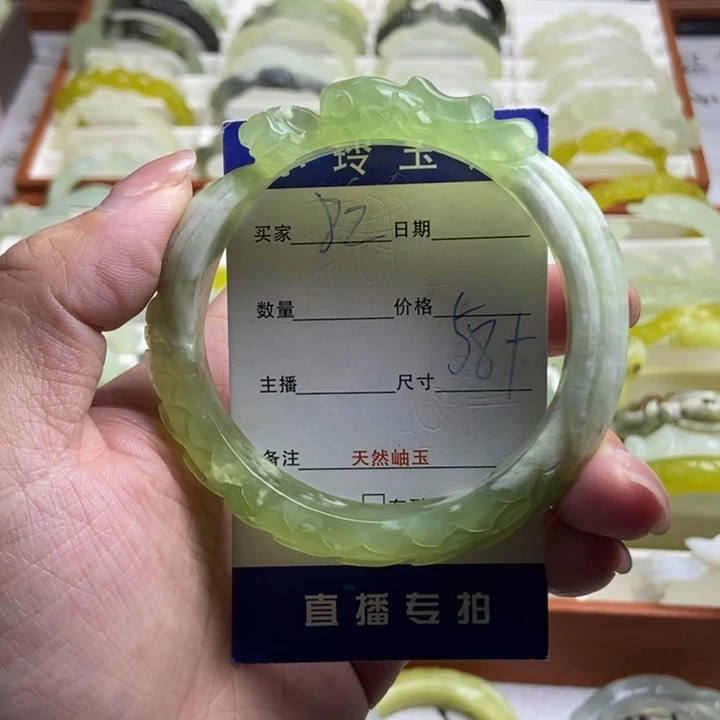 玲玉
买家 82 日期
数量 价格
主播 尺寸 58+
备注 天然岫玉
直播专拍